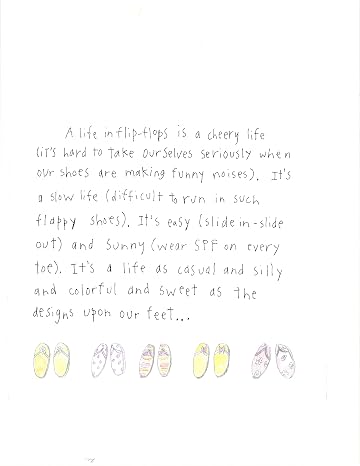 A life in flip-flops is a cheery life
(it's hard to take ourselves seriously when
our shoes are making funny noises). It's
a slow life (difficult to run in such
flappy shoes). It's easy (slide in-slide
out) and sunny (wear SPF on every
toe). It's a life as casual and silly
and colorful and sweet as the
designs upon our feet...